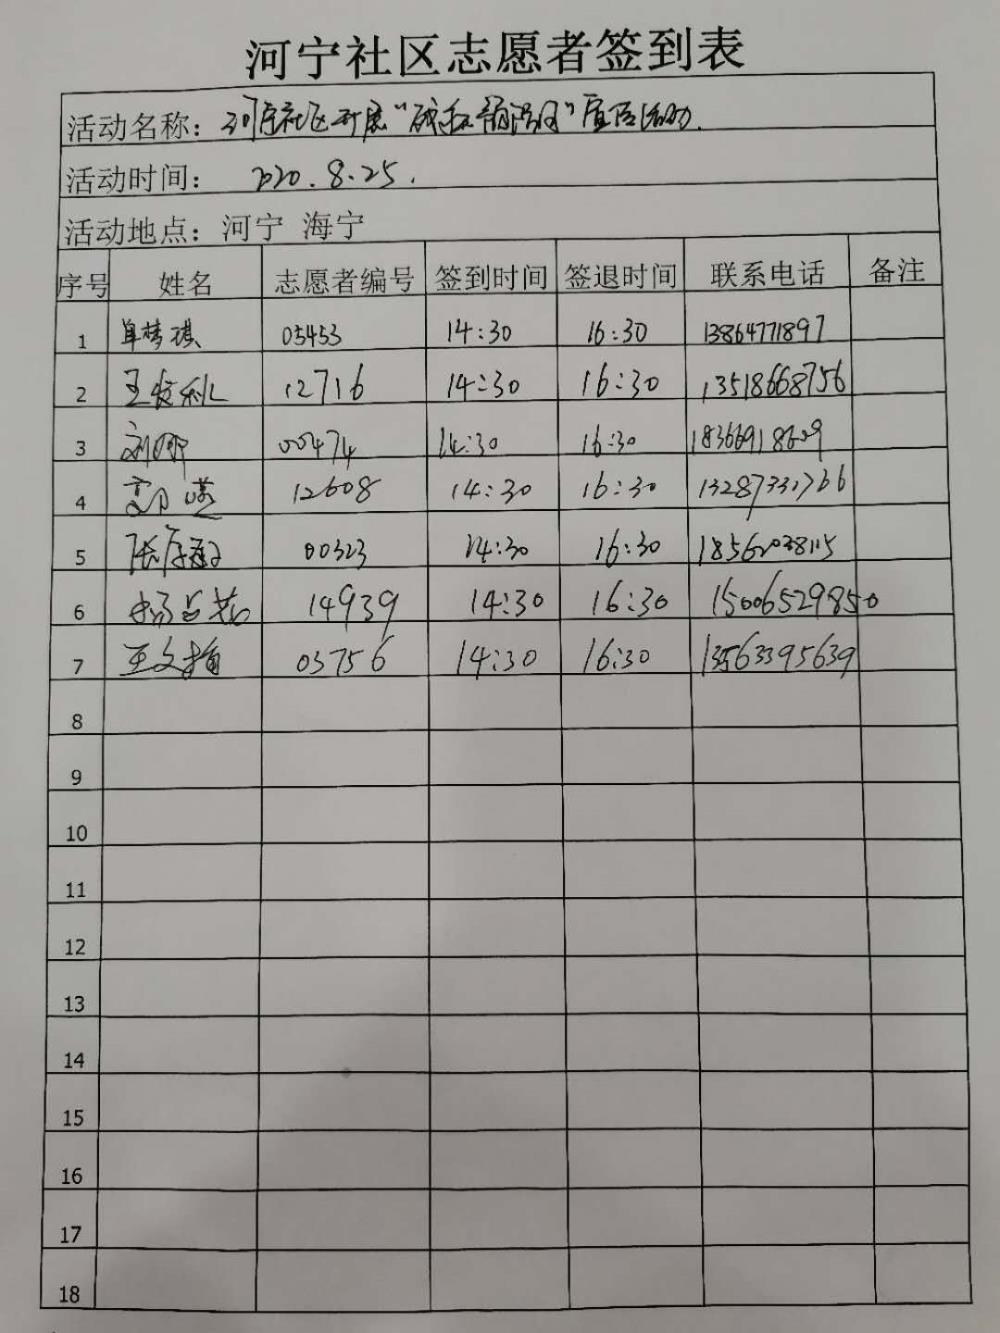 河宁社区志愿者签到表
活动名称：河宁社区开展“ ”宣传活动.
活动时间： 2020.8.25.
活动地点：河宁 海宁
序号 姓名 志愿者编号 签到时间 签退时间 联系电话 备注
1 单梦琪 05453 14:30 16:30 13864771897
2 王 12716 14:30 16:30 13518668756
3 刘娜 00474 14:30 16:30
4 12608 14:30 16:30
5 张 00323 14:30 16:30
6 杨 14939 14:30 16:30 15006529850
7 王文 03756 14:30 16:30 13563395639
8
9
10
11
12
13
14
15
16
17
18